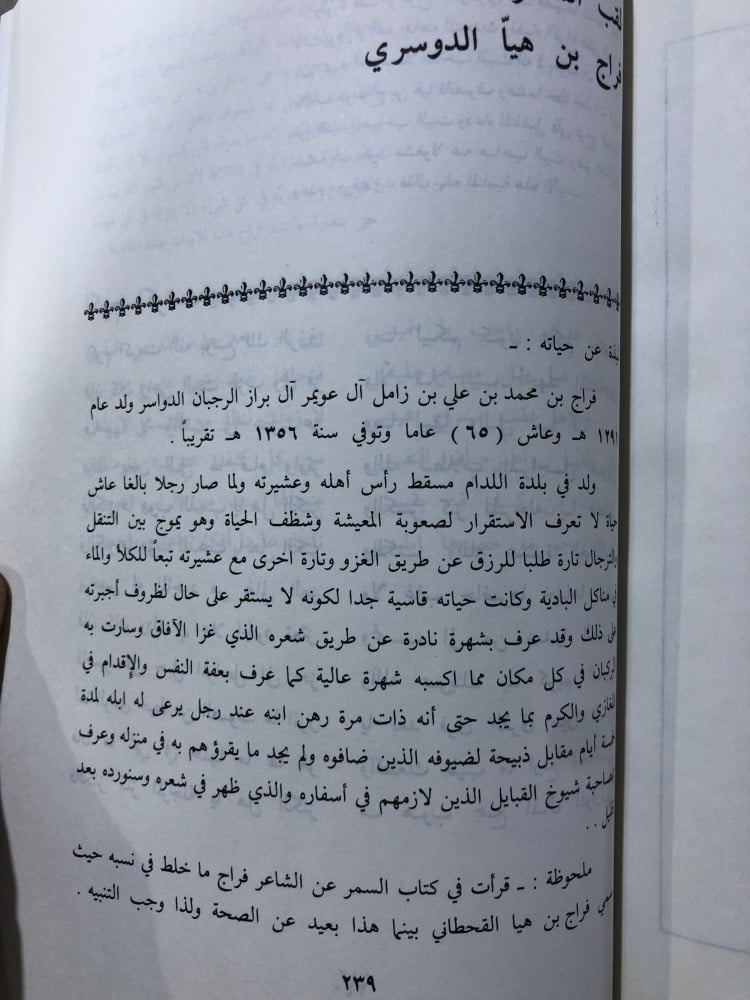 فراج بن هيّا الدوسري
نبذة عن حياته : ـ
فراج بن محمد بن علي بن زامل آل عويمر آل براز الرجبان الدواسر ولد عام
١٢٩١ هـ وعاش ( ٦٥ ) عاما وتوفي سنة ١٣٥٦ هـ تقريباً .
ولد في بلدة اللدام مسقط رأس أهله وعشيرته ولما صار رجلا بالغا عاش
حياة لا تعرف الاستقرار لصعوبة المعيشة وشظف الحياة وهو يموج بين التنقل
والترجال تارة طلبا للرزق عن طريق الغزو وتارة اخرى مع عشيرته تبعاً للكلأ والماء
في مناكل البادية وكانت حياته قاسية جدا لكونه لا يستقر على حال لظروف أجبرته
على ذلك وقد عرف بشهرة نادرة عن طريق شعره الذي غزا الآفاق وسارت به
الركبان في كل مكان مما اكسبه شهرة عالية كما عرف بعفة النفس والإقدام في
المغازي والكرم بما يجد حتى أنه ذات مرة رهن ابنه عند رجل يرعى له ابله لمدة
خمسة أيام مقابل ذبيحة لضيوفه الذين ضافوه ولم يجد ما يقرؤهم به في منزله وعرف
بمصاحبة شيوخ القبايل الذين لازمهم في أسفاره والذي ظهر في شعره وسنورده بعد
قليل . .
ملحوظة : ـ قرأت في كتاب السمر عن الشاعر فراج ما خلط في نسبه حيث
سمي فراج بن هيا القحطاني بينما هذا بعيد عن الصحة ولذا وجب التنبيه .
٢٣٩